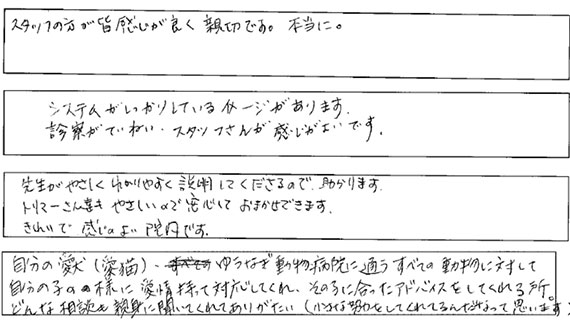 スタッフの方が皆感じが良く親切です。本当に。
システムがしっかりしているイメージがあります.
診察がていねい・スタッフさんが感じがよいです.
先生がやさしくわかりやすく説明してくださるので、助かります.
トリマーさん達もやさしいので安心しておまかせできます.
きれいで感じのよい院内です.
自分の愛犬(愛猫)、ゆうなぎ動物病院に通うすべての動物に対して
自分の子の様に愛情持って対応してくれ、その子に合ったアドバイスをしてくれる所。
どんな相談も親身に聞いてくれてありがたい